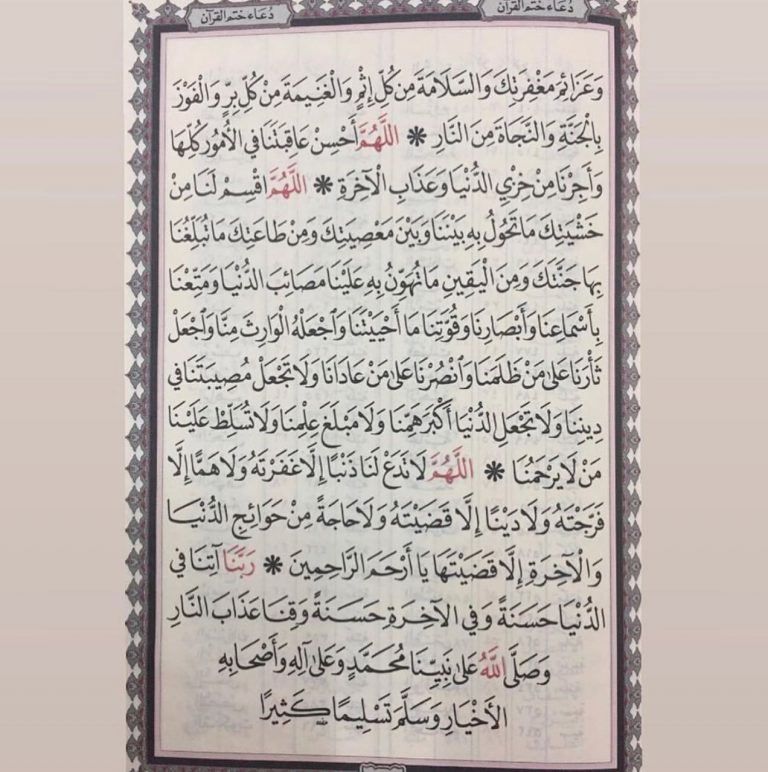 دُعَاء ختم القرآن
دُعَاء ختم القرآن
وَعَزَائِمَ مَغْفِرَتِكَ وَالسَّلَامَةَ مِن كُلِّ إِثْمٍ وَالْغَنِيمَةَ مِنْ كُلِّ بِرٍّ وَالْفَوْزَ
بِالْجَنَّةِ وَالنَّجَاةَ مِنَ النَّارِ * اللَّهُمَّ أَحْسِنْ عَاقِبَتَنَا فِي الْأُمُورِ كُلِّهَا
وَأَجِرْنَا مِنْ خِزْيِ الدُّنْيَا وَعَذَابِ الْآخِرَةِ * اللَّهُمَّ اقْسِمْ لَنَا مِنْ
خَشْيَتِكَ مَا تَحُولُ بِهِ بَيْنَنَا وَبَيْنَ مَعْصِيَتِكَ وَمِنْ طَاعَتِكَ مَا تُبَلِّغُنَا
بِهَا جَنَّتَكَ وَمِنَ الْيَقِينِ مَا تُهَوِّنُ بِهِ عَلَيْنَا مَصَائِبَ الدُّنْيَا وَمَتِّعْنَا
بِأَسْمَاعِنَا وَأَبْصَارِنَا وَقُوَّتِنَا مَا أَحْيَيْتَنَا وَاجْعَلْهُ الْوَارِثَ مِنَّا وَاجْعَلْ
ثَأْرَنَا عَلَى مَنْ ظَلَمَنَا وَانْصُرْنَا عَلَى مَنْ عَادَانَا وَلَا تَجْعَلْ مُصِيبَتَنَا فِي
دِينِنَا وَلَا تَجْعَلِ الدُّنْيَا أَكْبَرَ هَمِّنَا وَلَا مَبْلَغَ عِلْمِنَا وَلَا تُسَلِّطْ عَلَيْنَا
مَنْ لَا يَرْحَمُنَا * اللَّهُمَّ لَا تَدَعْ لَنَا ذَنْبًا إِلَّا غَفَرْتَهُ وَلَا هَمًّا إِلَّا
فَرَّجْتَهُ وَلَا دَيْنًا إِلَّا قَضَيْتَهُ وَلَا حَاجَةً مِنْ حَوَائِجِ الدُّنْيَا
وَالْآخِرَةِ إِلَّا قَضَيْتَهَا يَا أَرْحَمَ الرَّاحِمِينَ * رَبَّنَا آتِنَا فِي
الدُّنْيَا حَسَنَةً وَفِي الْآخِرَةِ حَسَنَةً وَقِنَا عَذَابَ النَّارِ
وَصَلَّى اللَّهُ عَلَى نَبِيِّنَا مُحَمَّدٍ وَعَلَى آلِهِ وَأَصْحَابِهِ
الْأَخْيَارِ وَسَلَّمَ تَسْلِيمًا كَثِيرًا